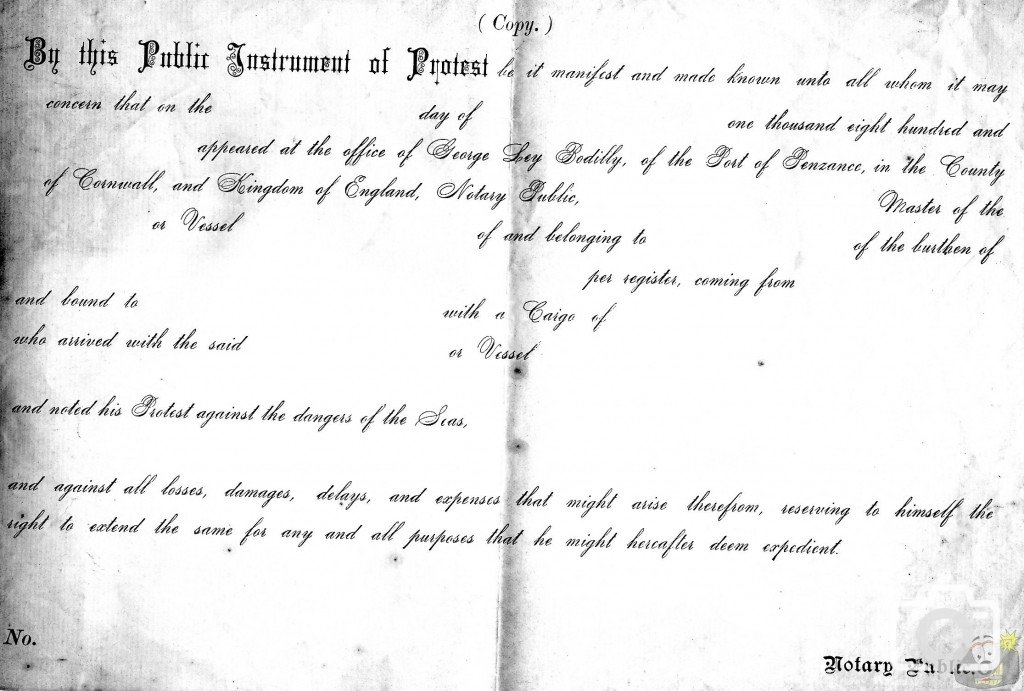 ( Copy. )
By this Public Instrument of Protest be it manifest and made known unto all whom it may
concern that on the day of one thousand eight hundred and
appeared at the office of George Ley Bodilly, of the Port of Penzance, in the County
of Cornwall, and Kingdom of England, Notary Public, Master of the
or Vessel of and belonging to of the burthen of
per register, coming from
and bound to with a Cargo of
who arrived with the said or Vessel
and noted his Protest against the dangers of the Seas,
and against all losses, damages, delays, and expenses that might arise therefrom, reserving to himself the
right to extend the same for any and all purposes that he might hereafter deem expedient.
No.
Notary Public.